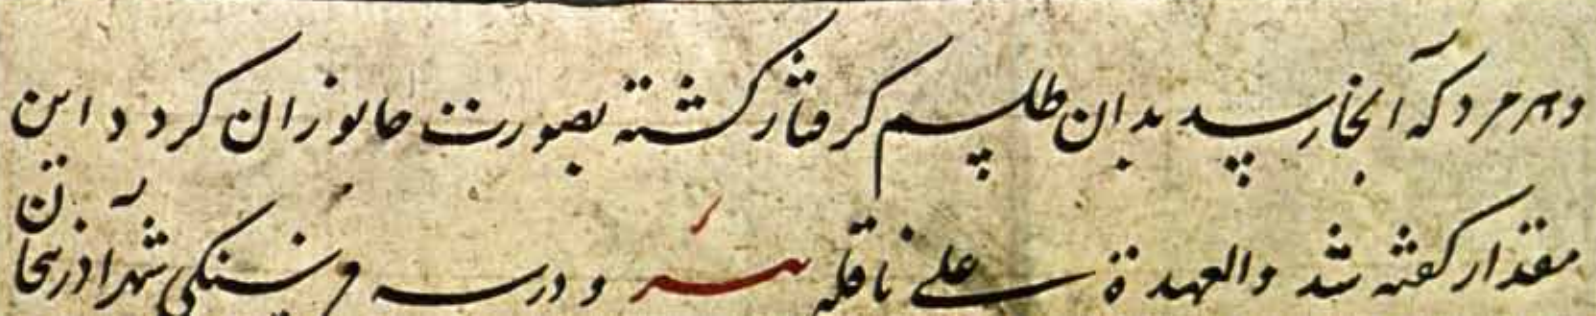 وهر مرد که آنجا رسید بدان طلسم کرفتار کشته بصورت جانوران کردد این
مقدار کفته شد والعهدة علی ناقله و در سه فرسنکی شهر آذربیجان